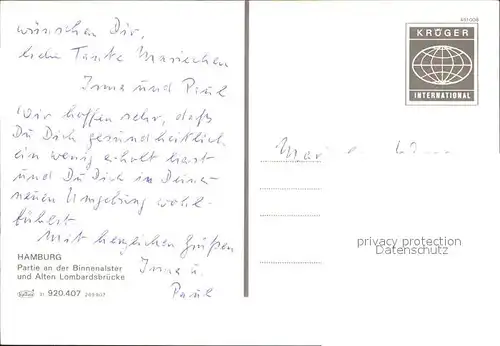 wünschen Dir,
liebe Tante Mariechen
Irma und Paul
Wir hoffen sehr, daß
Du Dich gesundheitlich
ein wenig erholt hast
und Du Dich in Deiner
neuen Umgebung wohl-
fühlst.
Mit herzlichen Grüßen
Irma u.
Paul
HAMBURG
Partie an der Binnenalster
und Alten Lombardsbrücke
920.407
KRÜGER
INTERNATIONAL
privacy protection
Datenschutz